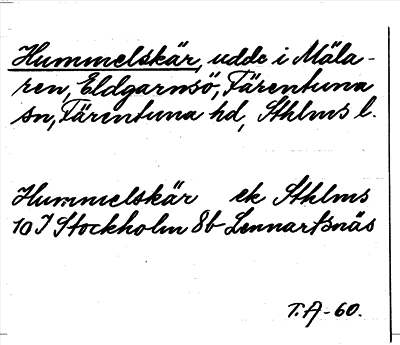 Hummelskär, udde i Mäla-
ren, Eldgarnsö, Färentuna
sn, Färentuna hd, Sthlms l.
Hummelskär ek Sthlms
10 I Stockholm 8b Lennartsnäs
T.A-60.